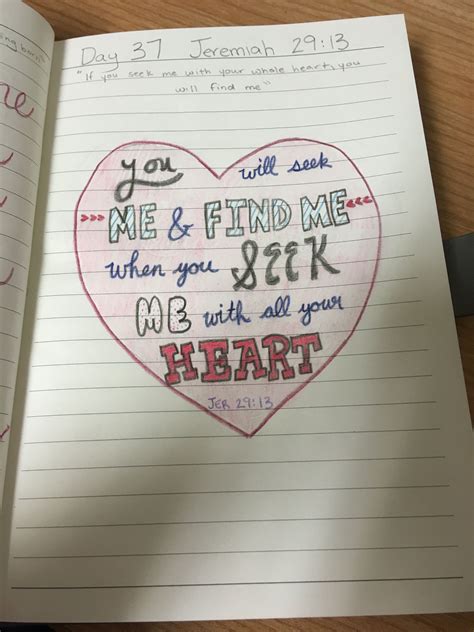 Day 37 Jeremiah 29:13
"If you seek me with your whole heart, you
will find me"
you will seek
ME & FIND ME
when you SEEK
ME with all your
HEART
JER 29:13